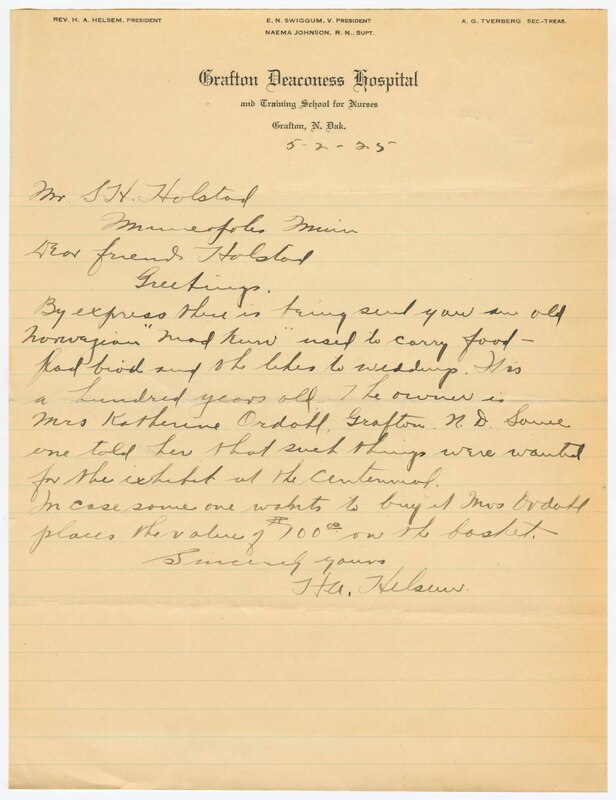 REV. H. A. HELSEM, PRESIDENT
E. N. SWIGGUM, V. PRESIDENT
A. G. TVERBERG SEC-TREAS.
NAEMA JOHNSON, R. N., SUPT.
Grafton Deaconess Hospital
and Training School for Nurses
Grafton, N. Dak.
5-2-25
Mr. S.H. Holstad
Minneapolis Minn
Dear friend Holstad
Greetings.
By express there is being send you an old
Norwegian "Mad Kurv" used to carry food -
flad brød and the likes to weddings. It is
a hundred years old. The owner is
Mrs Katherine Ordahl, Grafton N.D. Some
one told her that such things were wanted
for the exhibit at the Centennial.
In case some one wants to buy it Mrs Ordahl
places the value of $100.00 on the basket.
Sincerely yours
H.A. Helsem.